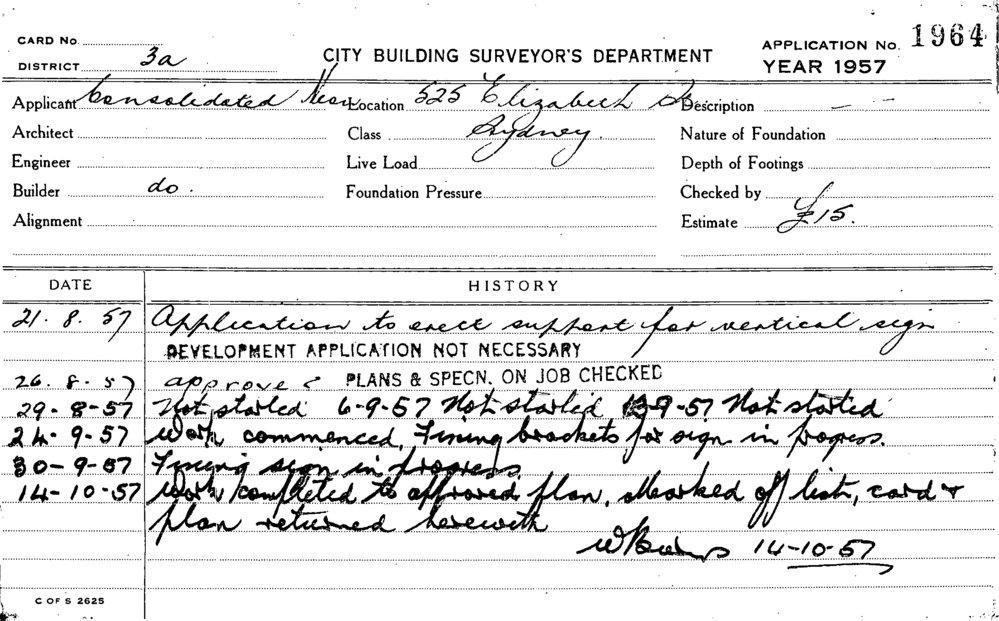 CARD No.
DISTRICT 3a
CITY BUILDING SURVEYOR'S DEPARTMENT
APPLICATION No. 1964
YEAR 1957
Applicant Consolidated Neon Location 525 Elizabeth St Description
Architect Class Sydney. Nature of Foundation
Engineer Live Load Depth of Footings
Builder do. Foundation Pressure Checked by
Alignment Estimate £15.
DATE HISTORY
21. 8. 57 Application to erect support for vertical sign
DEVELOPMENT APPLICATION NOT NECESSARY
26. 8. 57 approved PLANS & SPECN. ON JOB CHECKED
29-8-57 Not started 6-9-57 Not started 13-9-57 Not started
24-9-57 Work commenced, Fixing brackets for sign in progress.
30-9-57 Fixing sign in progress
14-10-57 Work completed to approved plan. Marked off list, card &
plan returned herewith
14-10-57
C OF S 2625